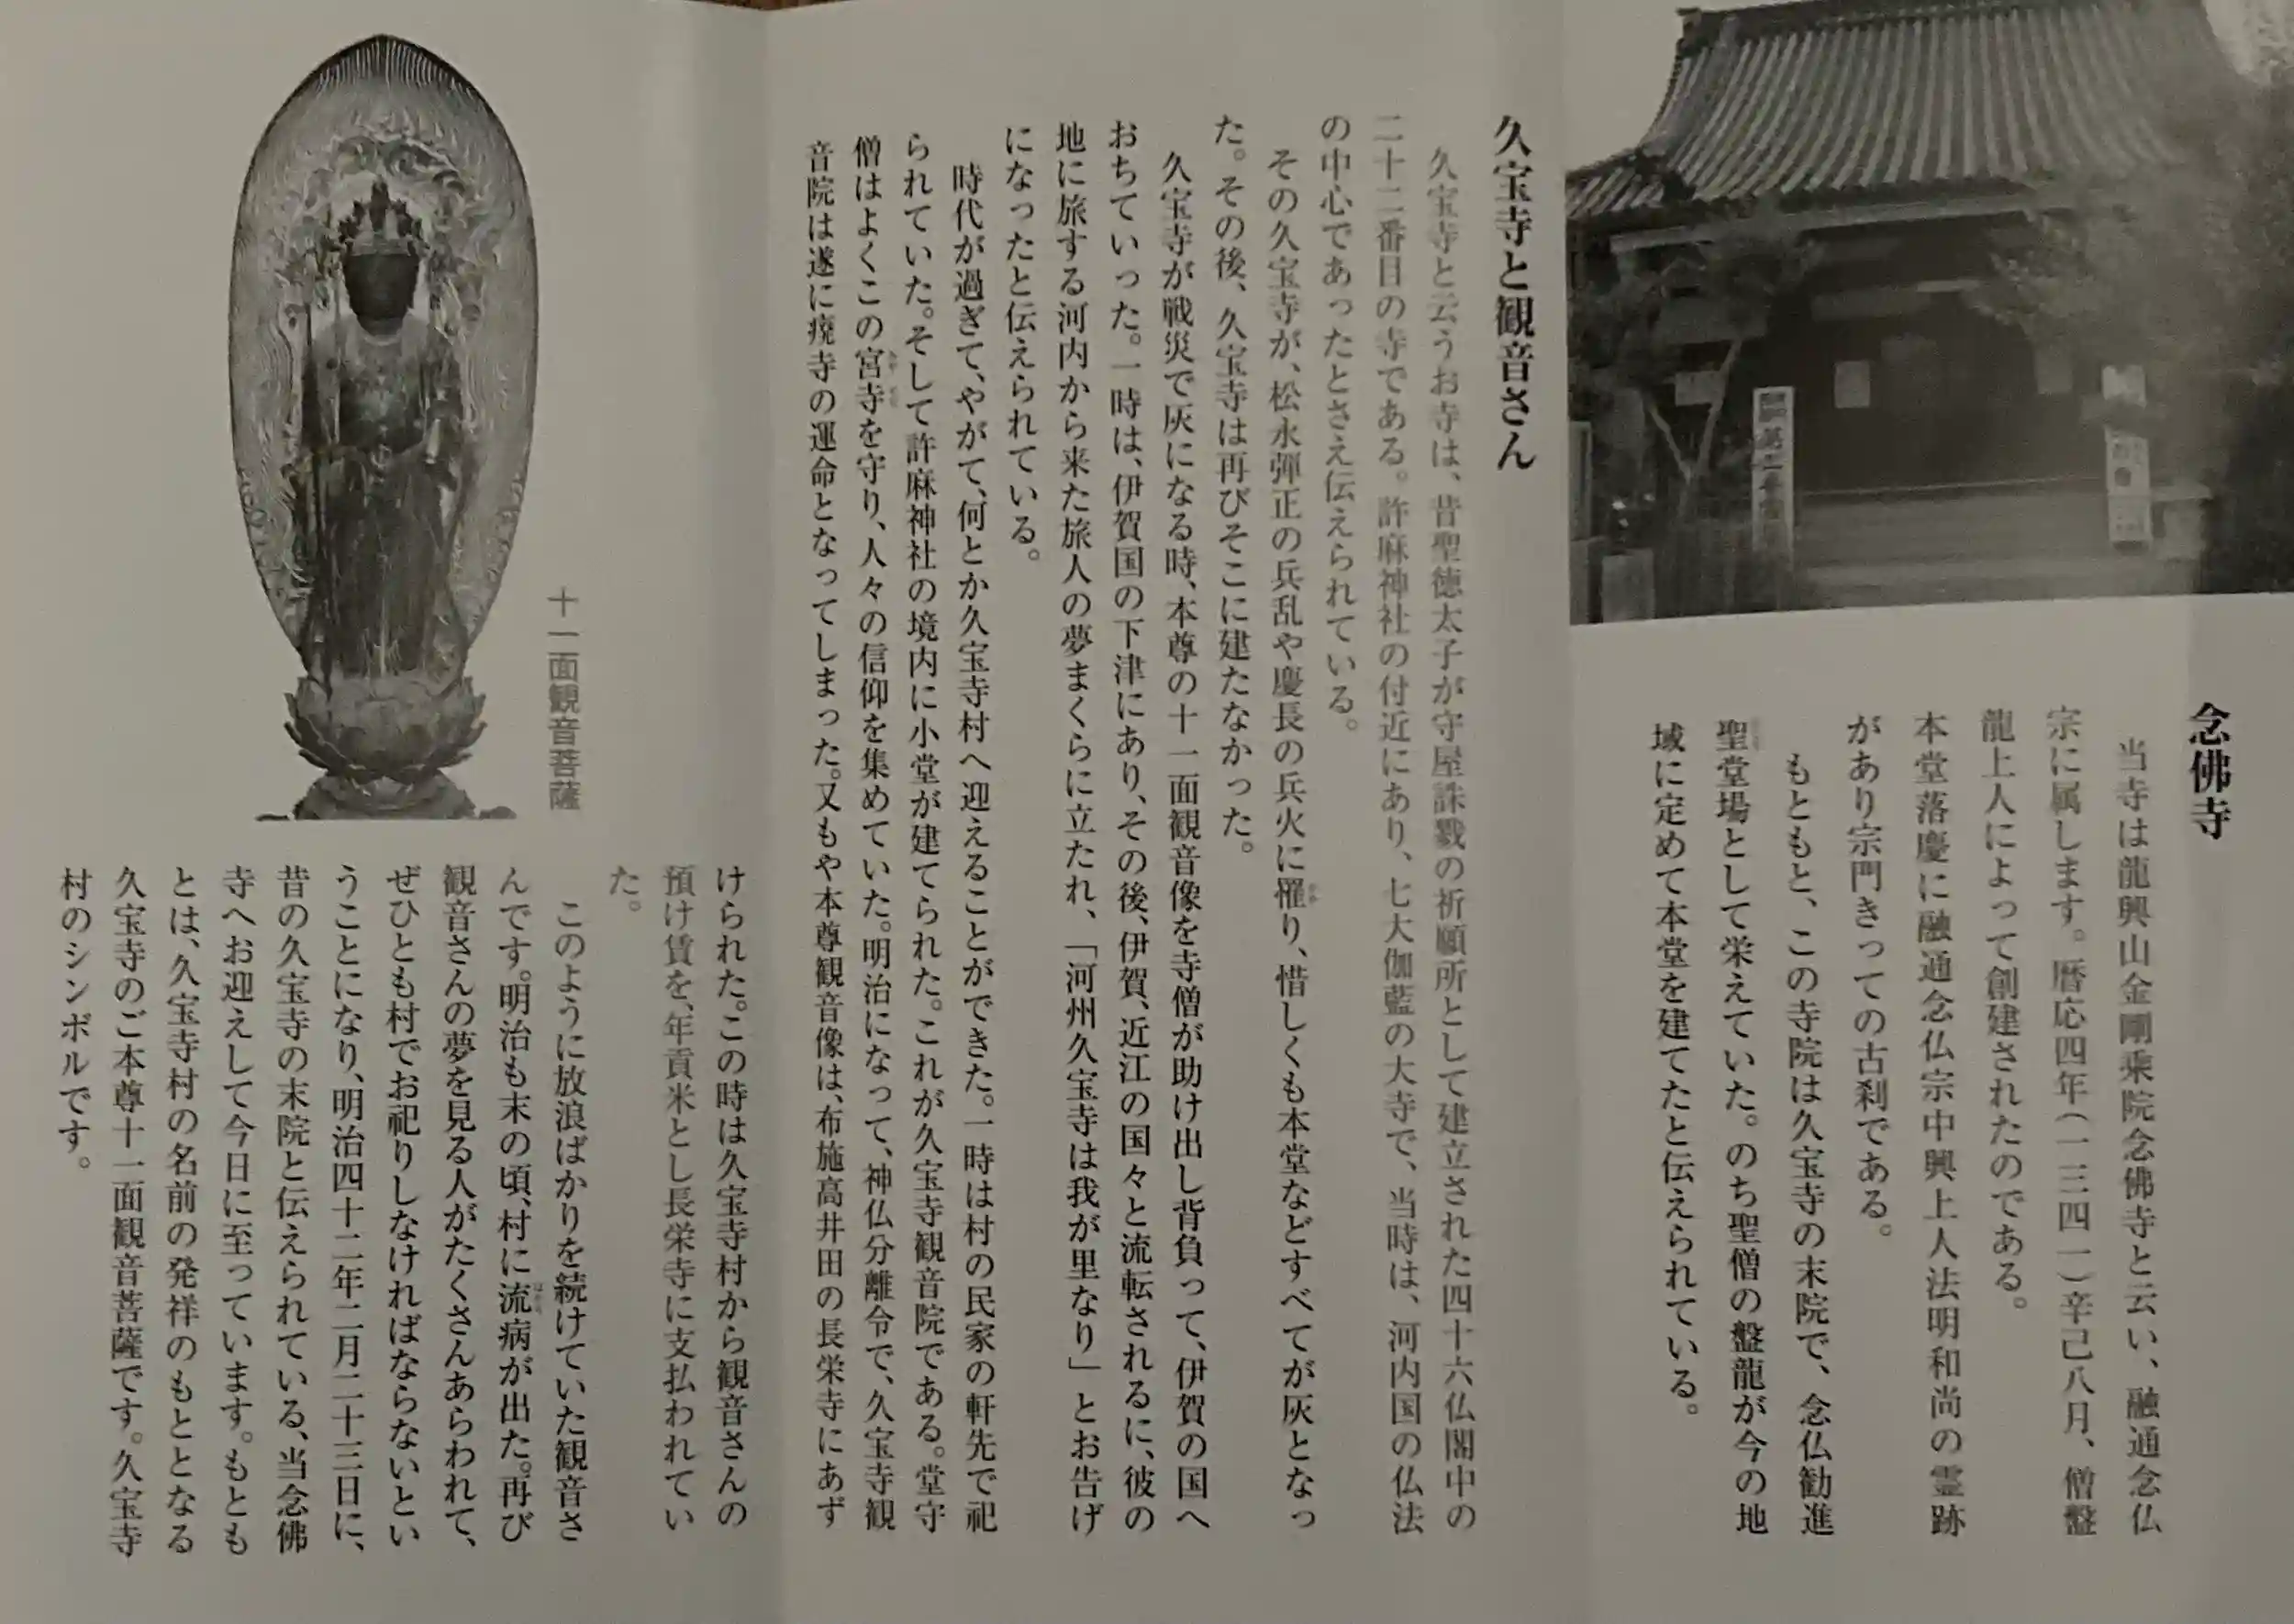 念佛寺
当寺は龍興山金剛乗院念佛寺と云い、融通念仏
宗に属します。暦応四年(一三四一)辛己八月、僧盤
龍上人によって創建されたのである。
本堂落慶に融通念仏宗中興上人法明和尚の霊跡
があり宗門きっての古刹である。
もともと、この寺院は久宝寺の末院で、念仏勧進
聖堂場として栄えていた。のち聖僧の盤龍が今の地
域に定めて本堂を建てたと伝えられている。
久宝寺と観音さん
久宝寺と云うお寺は、昔聖徳太子が守屋誅戮の祈願所として建立された四十六仏閣中の
二十二番目の寺である。許麻神社の付近にあり、七大伽藍の大寺で、当時は、河内国の仏法
の中心であったとさえ伝えられている。
その久宝寺が、松永弾正の兵乱や慶長の兵火に罹り、惜しくも本堂などすべてが灰となっ
た。その後、久宝寺は再びそこに建たなかった。
久宝寺が戦災で灰になる時、本尊の十一面観音像を寺僧が助け出し背負って、伊賀の国へ
おちていった。一時は、伊賀国の下津にあり、その後、伊賀、近江の国々と流転されるに、彼の
地に旅する河内から来た旅人の夢まくらに立たれ、「河州久宝寺は我が里なり」とお告げ
になったと伝えられている。
時代が過ぎて、やがて、何とか久宝寺村へ迎えることができた。一時は村の民家の軒先で祀
られていた。そして許麻神社の境内に小堂が建てられた。これが久宝寺観音院である。堂守
僧はよくこの宮寺を守り、人々の信仰を集めていた。明治になって、神仏分離令で、久宝寺観
音院は遂に廃寺の運命となってしまった。又もや本尊観音像は、布施高井田の長栄寺にあず
けられた。この時は久宝寺村から観音さんの
預け賃を、年貢米とし長栄寺に支払われてい
た。
このように放浪ばかりを続けていた観音さ
んです。明治も末の頃、村に流病が出た。再び
観音さんの夢を見る人がたくさんあらわれて、
ぜひとも村でお祀りしなければならないとい
うことになり、明治四十二年二月二十三日に、
昔の久宝寺の末院と伝えられている、当念佛
寺へお迎えして今日に至っています。もとも
とは、久宝寺村の名前の発祥のもととなる
久宝寺のご本尊十一面観音菩薩です。久宝寺
村のシンボルです。
十一面観音菩薩